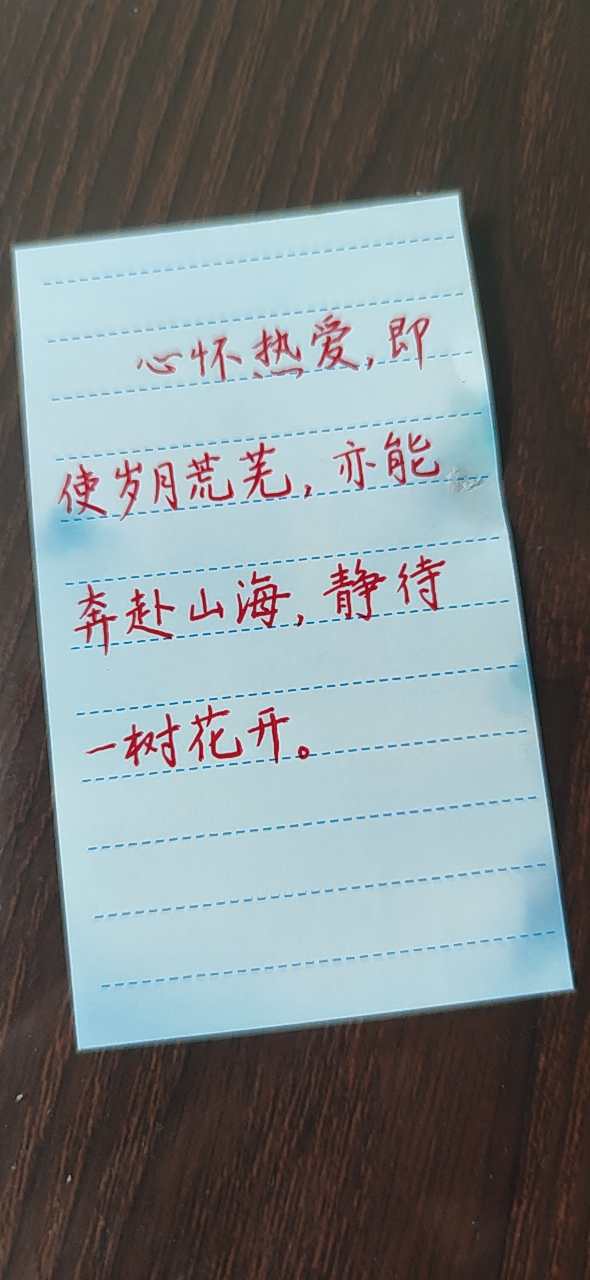 心怀热爱,即
使岁月荒芜,亦能
奔赴山海,静待
一树花开。